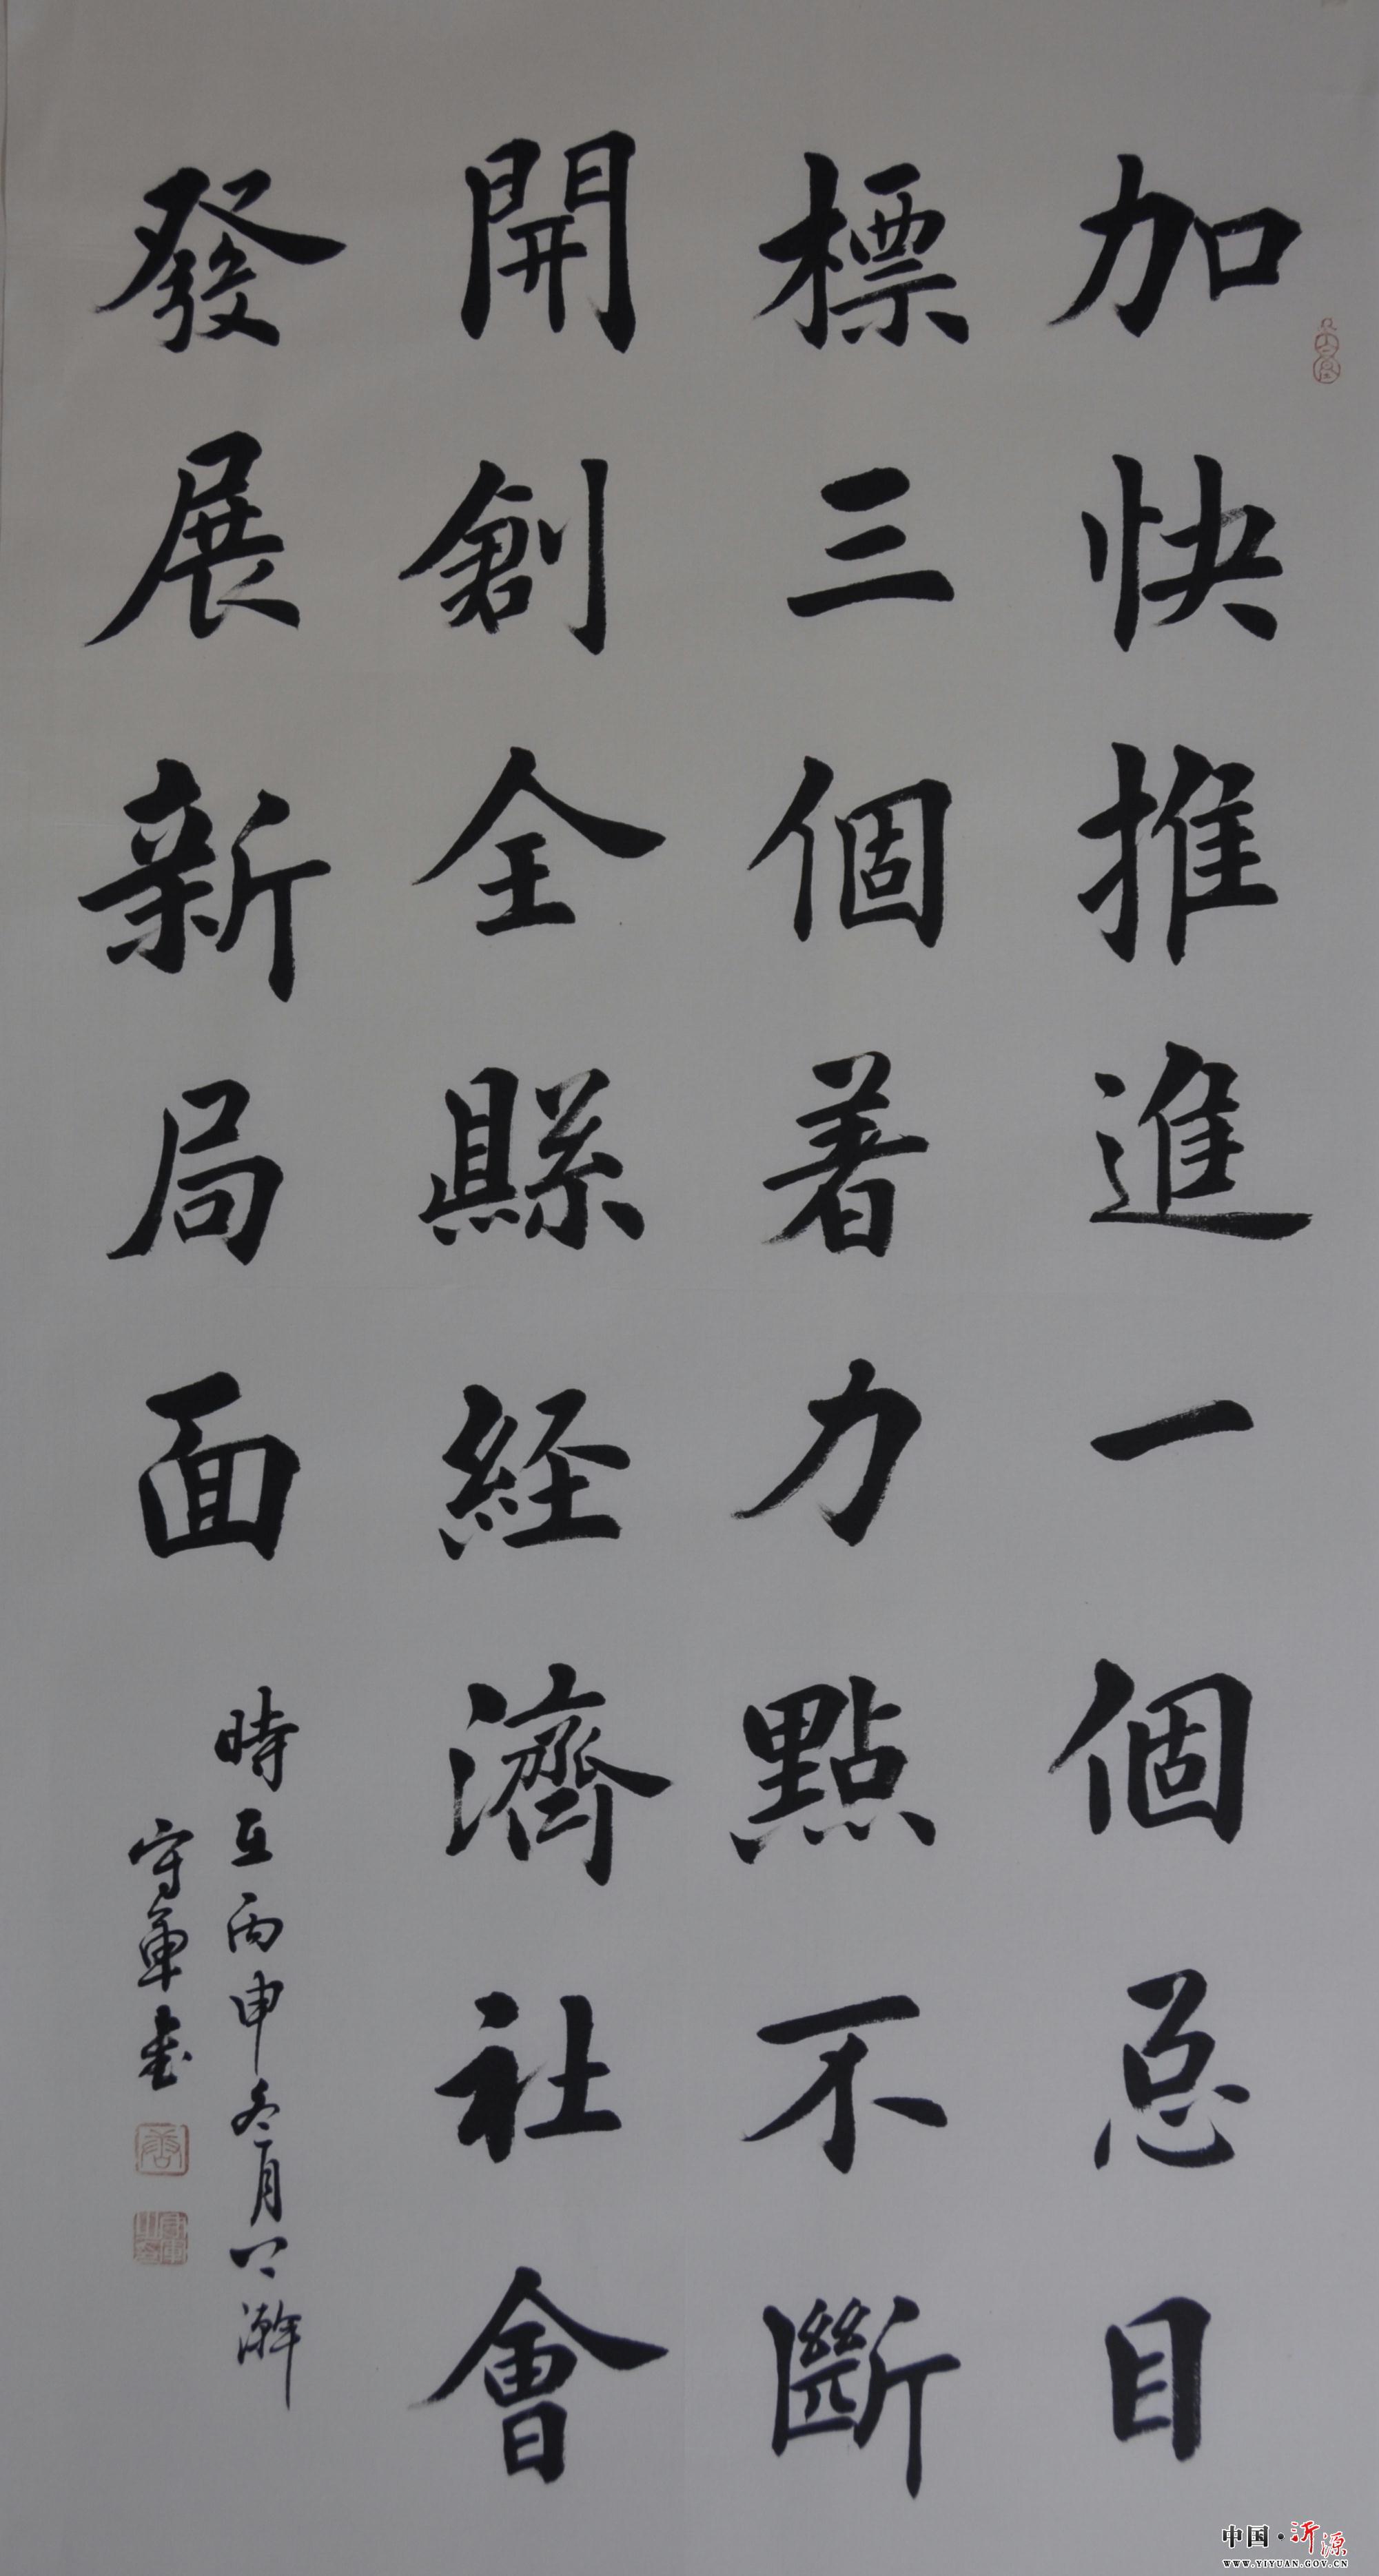 加快推進一個总目
標三個着力點不斷
開創全縣経濟社會
發展新局面
時在丙申冬月上澣
守軍書
中国·沂源
WWW.YIYUAN.GOV.CN